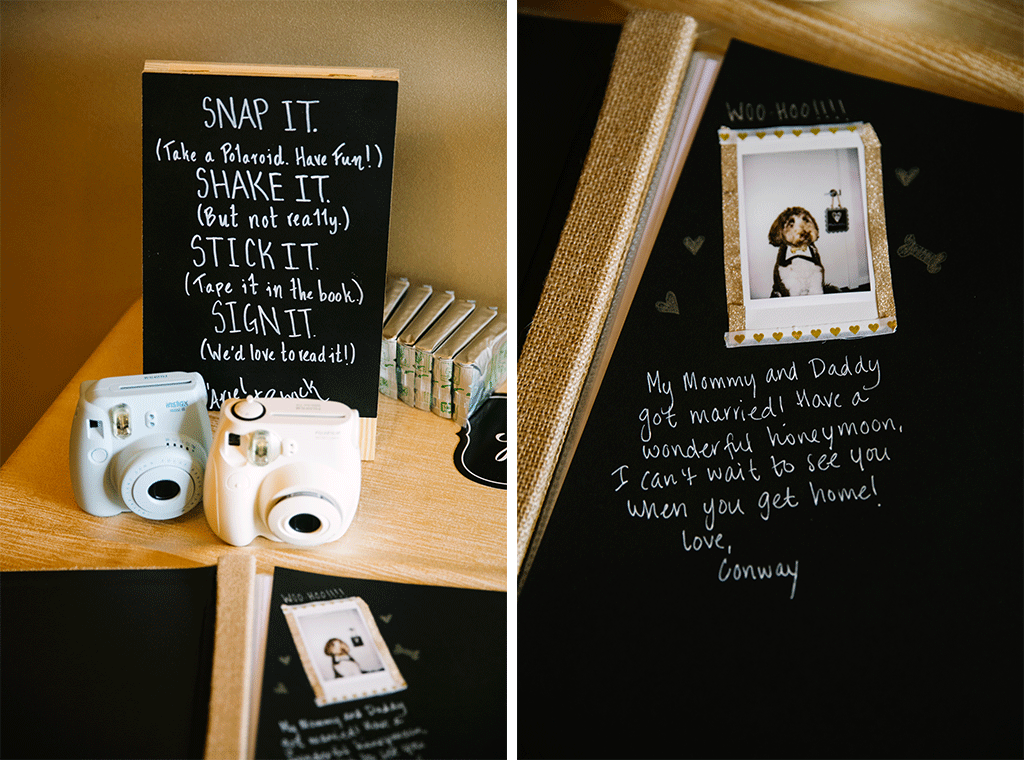 SNAP IT.
(Take a Polaroid. Have Fun!)
SHAKE IT.
(But not really.)
STICK IT.
(Tape it in the book.)
SIGN IT.
(We'd love to read it!)
instax
WOO-HOO!!!!
My Mommy and Daddy
got married! Have a
wonderful honeymoon,
WOO-HOO!!!!
My Mommy and Daddy
got married! Have a
wonderful honeymoon,
I can't wait to see you
when you get home!
Love,
Conway